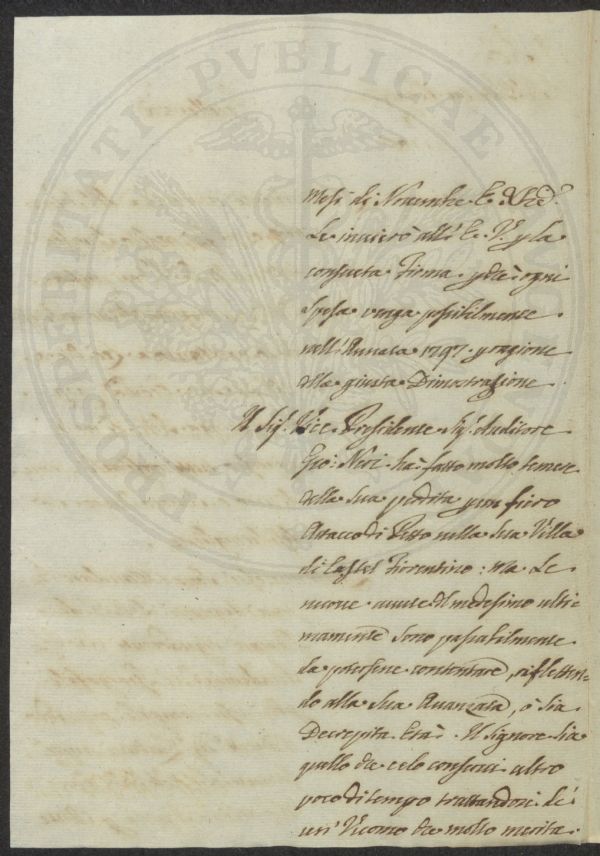 PROSPERITATI PVBLICAE
mesi di Novembre e Xbre
Le invierò all' E. V. p la
consueta Firma, p che ogni
spesa venga possibilmente
nell' Annata 1797. p ragione
della giusta Dimostrazione
Il Sig.r Vice Presidente Sig.r Auditore
Gio: Neri ha fatto molto temere
della sua perdita p un fiero
Attacco di Petto nella sua Villa
di Castel Fiorentino: Ma Le
nuove avute il medesimo ulti
mamente sono passabilmente
da potersene contentare, rifletten
do alla sua Avanzata, ò sia
Decrepita Età. Il Signore sia
quello che celo conservi altro
poco di tempo trattandosi de
un' Uomo che molto merita.